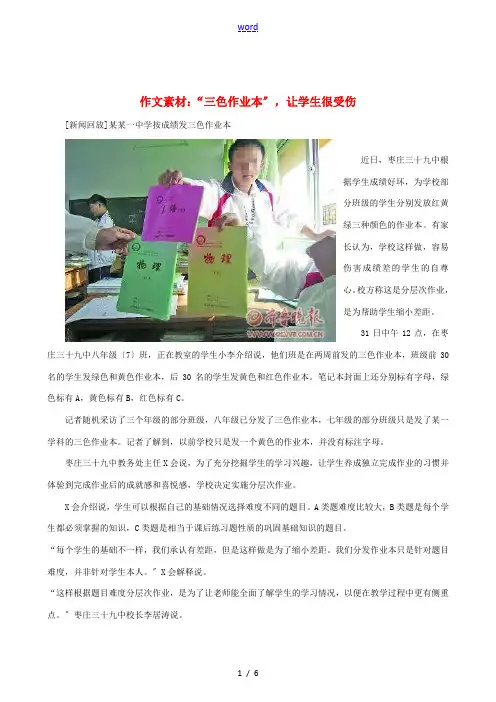 word
作文素材：“三色作业本〞，让学生很受伤
[新闻回放]某某一中学按成绩发三色作业本
近日，枣庄三十九中根
据学生成绩好坏，为学校部
分班级的学生分别发放红黄
绿三种颜色的作业本。有家
长认为，学校这样做，容易
伤害成绩差的学生的自尊
心。校方称这是分层次作业，
是为帮助学生缩小差距。
物理
物理
齐鲁晚报
31日中午12点，在枣
庄三十九中八年级〔7〕班，正在教室的学生小李介绍说，他们班是在两周前发的三色作业本，班级前30
名的学生发绿色和黄色作业本，后30名的学生发黄色和红色作业本。笔记本封面上还分别标有字母，绿
色标有A，黄色标有B，红色标有C。
记者随机采访了三个年级的部分班级，八年级已分发了三色作业本，七年级的部分班级只是发了某一
学科的三色作业本。记者了解到，以前学校只是发一个黄色的作业本，并没有标注字母。
枣庄三十九中教务处主任X会说，为了充分挖掘学生的学习兴趣，让学生养成独立完成作业的习惯并
体验到完成作业后的成就感和喜悦感，学校决定实施分层次作业。
X会介绍说，学生可以根据自己的基础情况选择难度不同的题目。A类题难度比较大，B类题是每个学
生都必须掌握的知识，C类题是相当于课后练习题性质的巩固基础知识的题目。
“每个学生的基础不一样，我们承认有差距，但是这样做是为了缩小差距。我们分发作业本只是针对题目
难度，并非针对学生本人。〞X会解释说。
“这样根据题目难度分层次作业，是为了让老师能全面了解学生的学习情况，以便在教学过程中更有侧重
点。〞枣庄三十九中校长李居涛说。
1 / 6